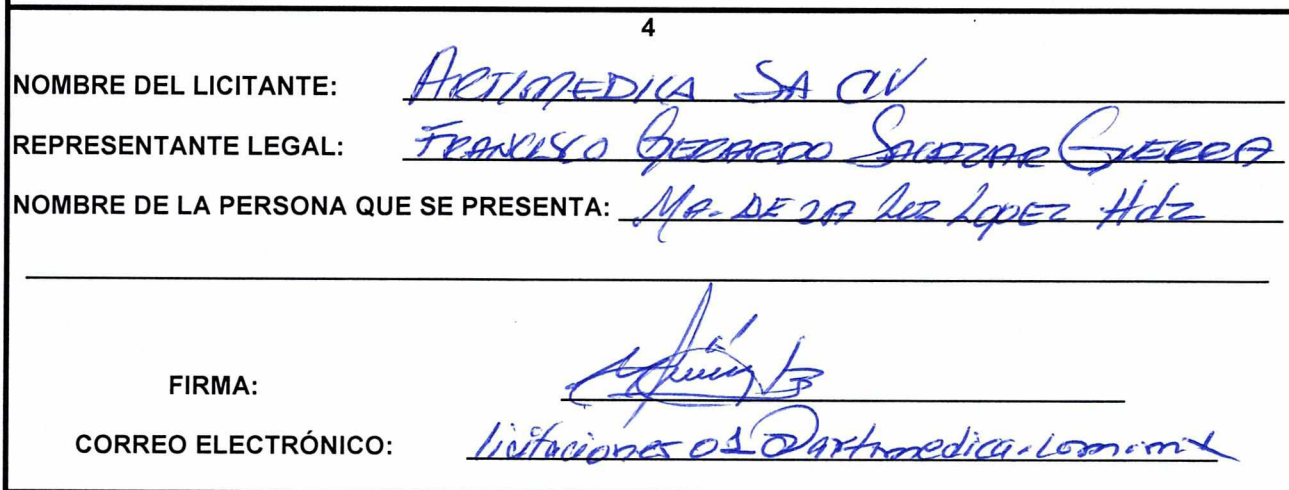 4
NOMBRE DEL LICITANTE: ARTIMEDICA SA CV
REPRESENTANTE LEGAL: FRANCISCO GERARDO SALAZAR GUERRA
NOMBRE DE LA PERSONA QUE SE PRESENTA: MA. DE LA LUZ LOPEZ Hdz
FIRMA:
CORREO ELECTRÓNICO: licitaciones01@artimedica.com.mx